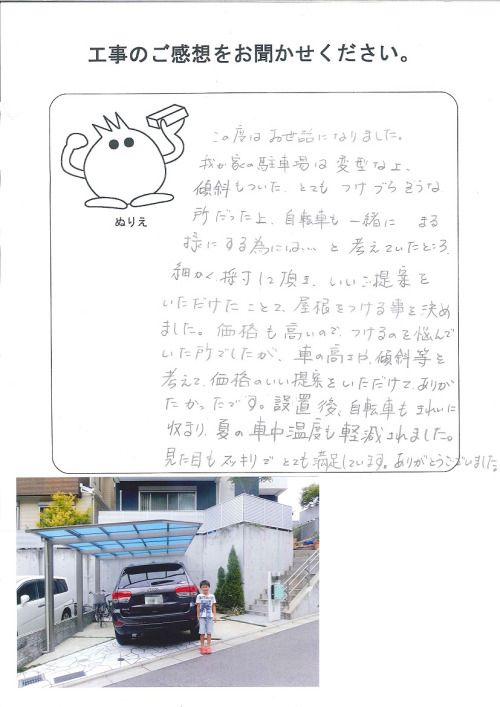 工事のご感想をお聞かせください。
ぬりえ
この度はお世話になりました。
我が家の駐車場は変型な上、
傾斜もついた、とてもつけづらそうな
所だった上、自転車も一緒に まる
様にする為には… と考えていたところ、
細かく採寸して頂き、いいご提案を
いただけたことで、屋根をつける事を決め
ました。価格も高いので、つけるのを悩んで
いた所でしたが、車の高さや、傾斜等を
考えて、価格のいい提案をいただけて、ありが
たかったです。設置後、自転車もきれいに
収まり、夏の車中温度も軽減されました。
見た目もスッキリでとても満足しています。ありがとうございました。